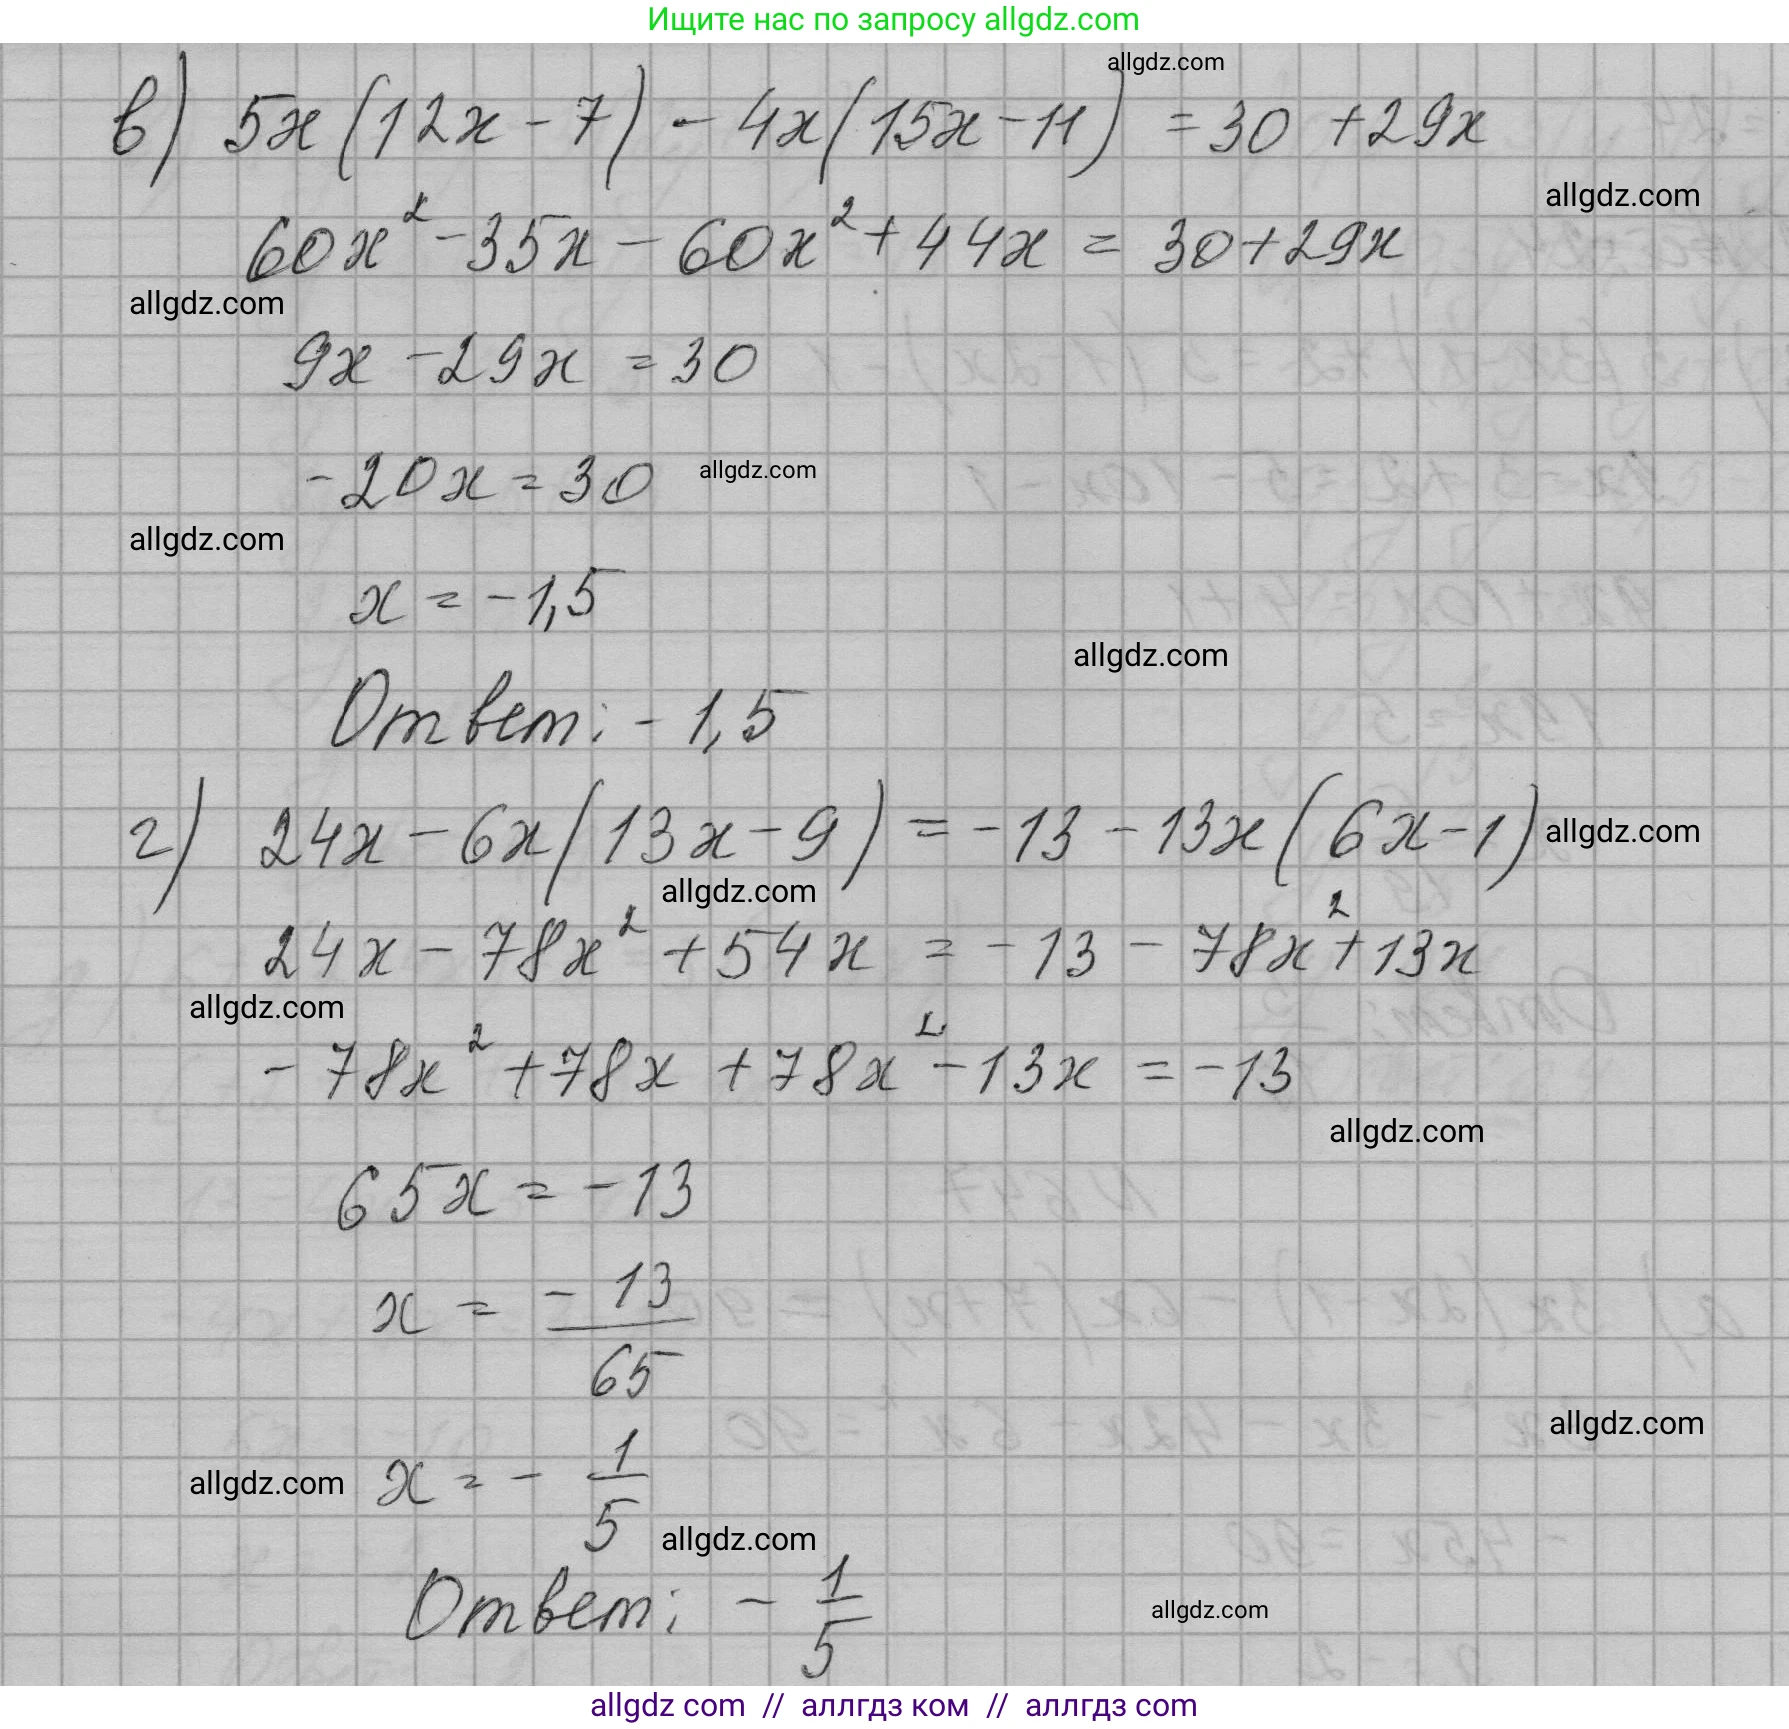 Ищите нас по запросу allgdz.com
allgdz.com
в) 5x(12x-7) - 4x(15x-11) = 30 + 29x
allgdz.com
60x² - 35x - 60x² + 44x = 30 + 29x
allgdz.com
9x - 29x = 30
-20x = 30 allgdz.com
allgdz.com
x = -1,5
allgdz.com
Ответ: -1,5
г) 24x - 6x(13x-9) = -13 - 13x(6x-1) allgdz.com
allgdz.com
24x - 78x² + 54x = -13 - 78x² + 13x
allgdz.com
-78x² + 78x + 78x² - 13x = -13
allgdz.com
65x = -13
x = -13/65
allgdz.com
allgdz.com x = - 1/5
allgdz.com
Ответ: - 1/5
allgdz.com
allgdz com // аллгдз ком // аллгдз com